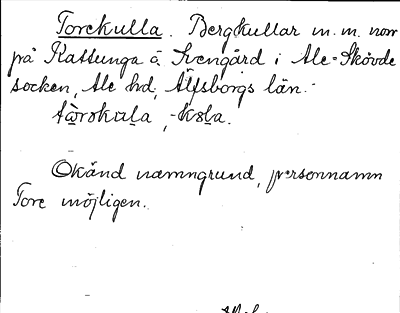 Torekulla. Bergkullar m.m. norr
på Kattunga å Svengård i Ale-Skövde
socken, Ale hd, Älfsborgs län.
Okänd namngrund, personnamn
Tore möjligen.